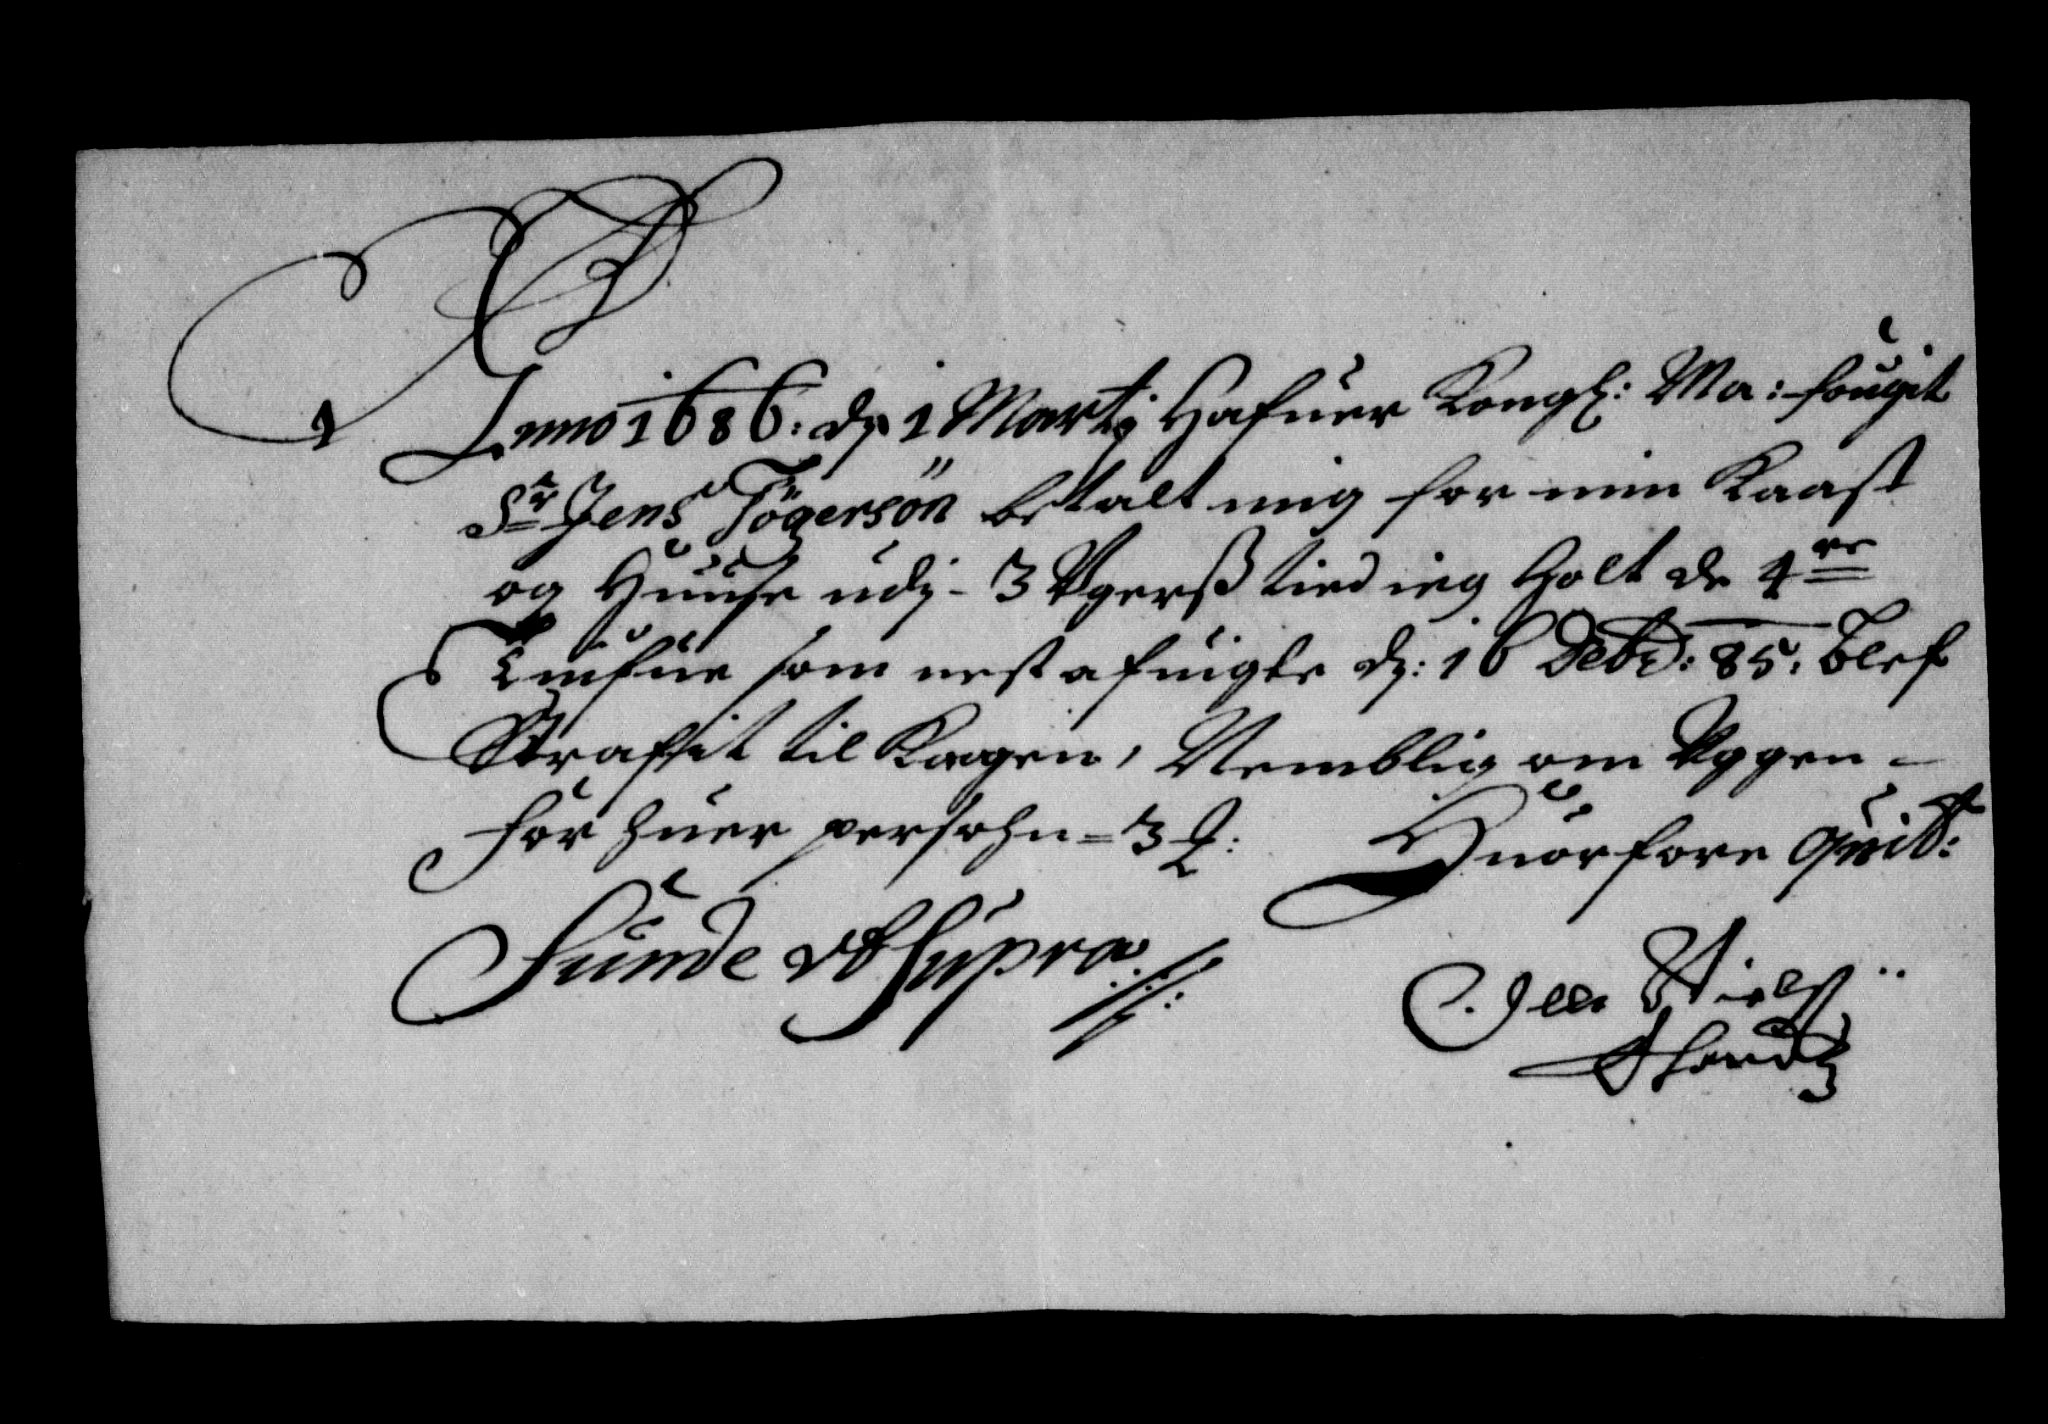 Anno 1686: dj 1 Martj Hafuer Kongl: Ma: fougit
Sr Jens Tögersön betalt mig for min Kaast
og Huuse udj - 3 Vgerß tied ieg Holt de 4re
Tiufue som nest afuigte dj: 16 Debr: 85. blef
Straffit til Kagen, Nemblig om Vggen -
for huer persohn = 3 ₰: Huorfore Quit:
Datum ut Supra
Niels